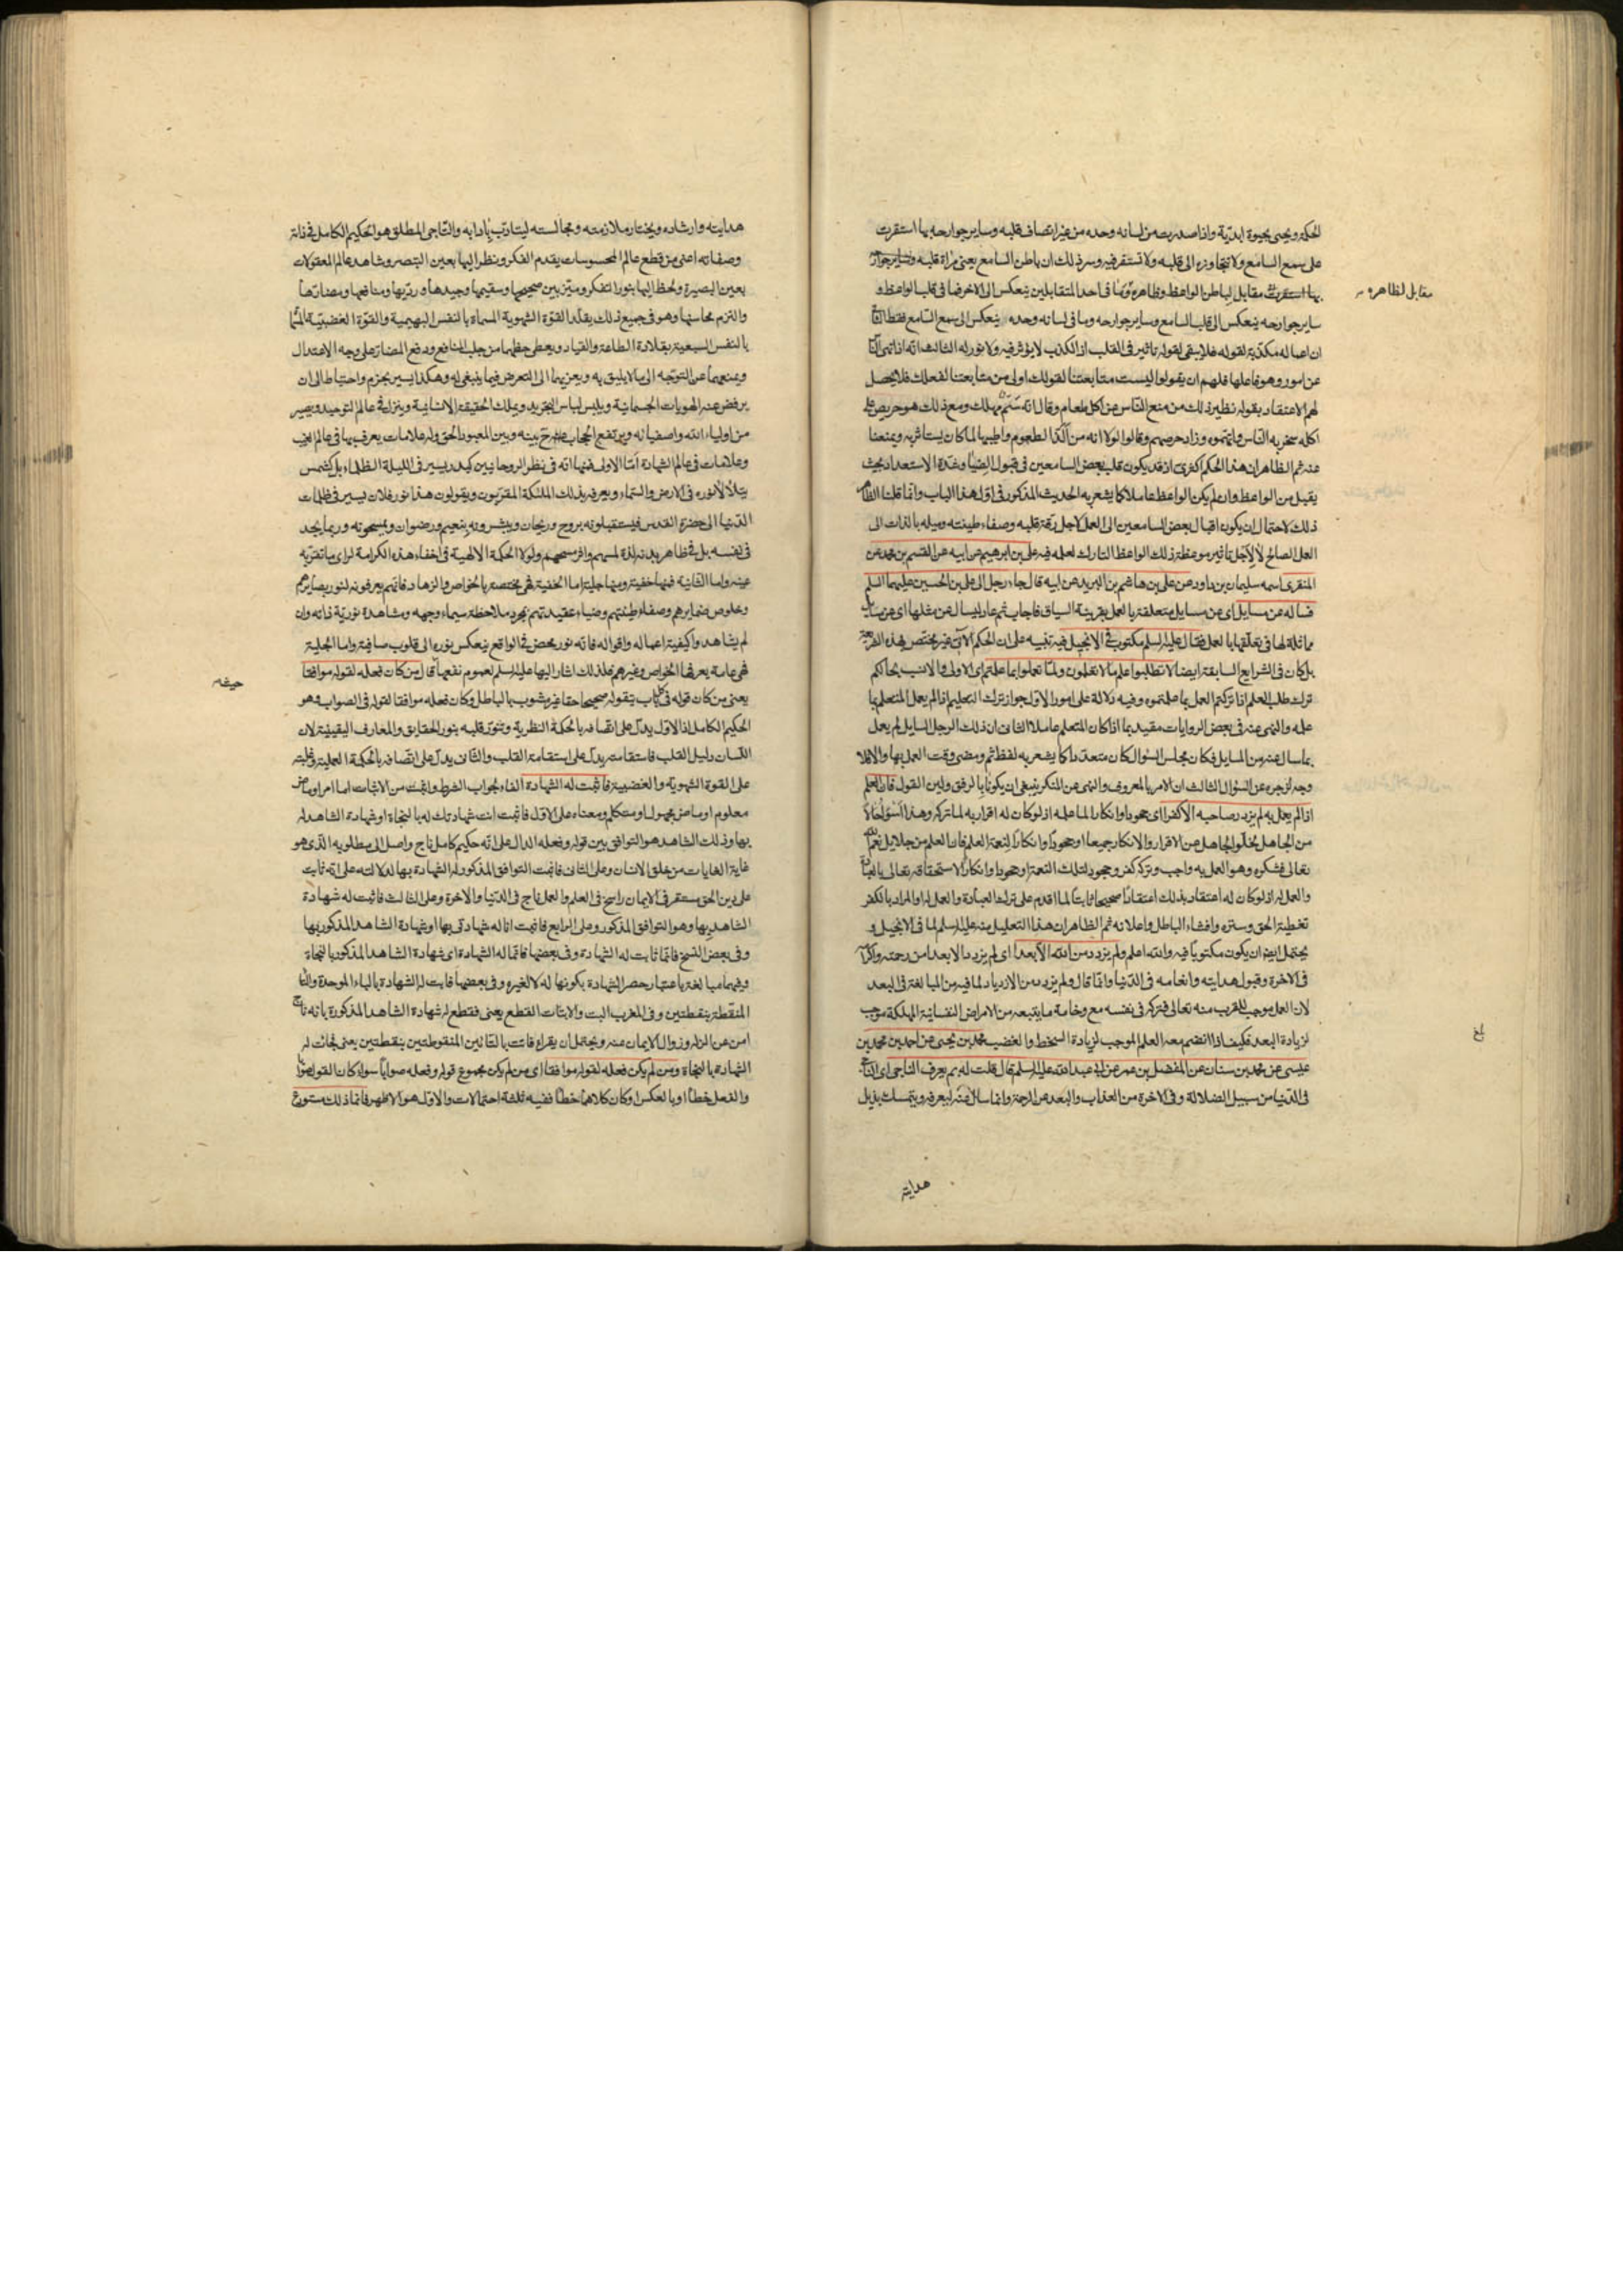 الحكمة ويحيى بحيوة ابديّة واذا صدرت من لسانه وحده من غير اتصاف قلبه وساير جوارحه بها استقرت
على سمع السامع ولا تتجاوزه الى قلبه ولا تستقر فيه وسر ذلك ان باطن السامع يعنى مرآة قلبه وساير جوارحه
بها استقرت مقابل لباطن الواعظ وظاهره وما فى احد المتقابلين ينعكس الى الاخر فما فى قلب الواعظ و
ساير جوارحه ينعكس الى قلب السامع وساير جوارحه وما فى لسانه وحده ينعكس الى سمع السامع فقط
ان اعماله مكذبة لقوله فلا يبقى لقوله تاثير فى القلب اذ الكذب لا يؤثر فيه ولا نور له الثالث انه اذا نهى الناس
عن امور وهو فاعلها فلهم ان يقولوا ليست متابعتنا لقولك اولى من متابعتنا لفعلك فلا يحصل
لهم الاعتقاد بقوله نظير ذلك من منع الناس عن اكل طعام وقال انه سَمّ مهلك ومع ذلك هو حريص على
اكله سخر به الناس واتهموه وزاد حرصهم وقالوا لولا انه من الذّ الطعوم واطيبها لما كان يستاثر به ويمنعنا
عنه ثم الظاهر ان هذا الحكم اكثرى اذ قد يكون قلب بعض السامعين فى قبول الضياء وشدة الاستعداد بحيث
يقبل من الواعظ وان لم يكن الواعظ عاملا كما يشعر به الحديث المذكور فى اول هذا الباب وانما قلنا الظاهر
ذلك لاحتمال ان يكون اقبال بعض السامعين الى العمل لاجل رقة قلبه وصفاء طينته وميله بالذات الى
العمل الصالح لا لاجل تاثير موعظة ذلك الواعظ التارك لعمله فيه على بن ابرهيم عن ابيه عن القسم بن محمد عن
المنقرى اسمه سليمان بن داود عن على بن هاشم بن البريد عن ابيه قال جاء رجل الى على بن الحسين عليهما السلم
فساله عن مسايل اى عن مسايل متعلقة بالعمل بقرينة السياق فاجاب ثم عاد ليسال عن مثلها اى عن مسايل
مماثلة لها فى تعلقها بالعمل فقال عليه السلم مكتوب فى الانجيل فيه تنبيه على ان الحكم الآتى غير مختص بهذه الشريعة
بل كان فى الشرايع السابقة ايضا لا تطلبوا علم ما لا تعلمون ولما تعلموا بما علمتم اى الاولى والانسب بحالكم
ترك طلب العلم اذا تركتم العمل بما علمتموه وفيه دلالة على امور الاول جواز ترك التعليم اذا لم يعمل المتعلم بما
علمه والنهى عنه فى بعض الروايات مقيد بما اذا كان المتعلم عاملا الثانى ان ذلك الرجل السايل لم يعمل
بما سال عنه من المسايل فكان مجلس السؤال كان متعددا كما يشعر به لفظ ثم ومضى وقت العمل بها والا فلا
وجه لزجره عن السؤال الثالث ان الامر بالمعروف والنهى عن المنكر ينبغى ان يكونا بالرفق ولين القول فان العلم
اذا لم يعمل به لم يزدد صاحبه الا كفرا اى جحودا وانكارا لما علمه اذ لو كان له اقرار به لما تركه وهذا اَسْوَءُ حالا
من الجاهل لخلو الجاهل عن الاقرار والانكار جميعا او جحودا وانكارا لنعمة العلم فان العلم من جلايل نعم الله
تعالى فشكره وهو العمل به واجب وتركه كفر وجحود لتلك النعمة او جحودا وانكارا لاستحقاقه تعالى بالعبادة
والعمل له اذ لو كان له اعتقاد بذلك اعتقادا صحيحا ثابتا لما اقدم على ترك العبادة والعمل له او المراد بالكفر
تغطية الحق وستره وافشاء الباطل واعلانه ثم الظاهر ان هذا التعليل منه عليه السلم لما فى الانجيل و
يحتمل ايضا ان يكون مكتوبا فيه والله اعلم ولم يزدد من الله الا بعدا اى لم يزدد الا بعدا من رحمته واكرامه
فى الاخرة وقبول هدايته وانعامه فى الدنيا وانما قال ولم يزدد من الازدياد لما فيه من المبالغة فى البعد
لان العمل موجب للقرب منه تعالى فتركه فى نفسه مع وخامة ما يتبعه من الامراض النفسانية المهلكة موجب
لزيادة البعد فكيف اذا انضم معه العلم الموجب لزيادة السخط والغضب محمد بن يحيى عن احمد بن محمد بن
عيسى عن محمد بن سنان عن المفضل بن عمر عن ابى عبد الله عليه السلم قال قلت له بم يعرف الناجى اى الناجى
فى الدنيا من سبيل الضلالة وفى الاخرة من العذاب والبعد عن الرحمة وانما سال عنه ليعرفه ويتمسك بذيل
مقابل لظاهره
بلغ
هدايته
هدايته وارشاده ويختار ملازمته ومجالسته ليتادّب بآدابه والناجى المطلق هو الحكيم الكامل فى ذاته
وصفاته اعنى من قطع عالم المحسوسات بقدم الفكر ونظر اليها بعين التبصر وشاهد عالم المعقولات
بعين البصيرة ولحظ اليها بنور التفكر وميّز بين صحيحها وسقيمها وجيدها ورديها ومنافعها ومضارّها
والتزم محاسنها وهو فى جميع ذلك يقلّد القوّة الشهوية المسماة بالنفس البهيمية والقوّة الغضبيّة المسماة
بالنفس السبعية بقلادة الطاعة والقياد ويعطى حظهما من جلب المنافع ودفع المضارّ على وجه الاعتدال
ويمنعهما عن التوجّه الى ما لا يليق به ويعزيهما الى التعرض فيما ينبغى له وهكذا يسير بجزم واحتياط الى ان
يرفض عنه الهويات الجسمانية ويلبس لباس التجريد ويملك الحقيقة الانسانية وينزل فى عالم التوحيد ويصير
من اولياء الله واصفيائه ويرتفع الحجاب بينه وبين المعبود الحق وله علامات يعرف بها فى عالم الغيب
وعلامات فى عالم الشهادة امّا الاولى فمنها انّه فى نظر الروحانيين كبدر يسير فى الليلة الظلماء بل كشمس
يتلألأ نوره فى الارض والسماء ويعرفه بذلك الملئكة المقربون ويقولون هذا نور فلان يسير فى ظلمات
الدنيا الى حضرة القدس فيستقبلونه بروح وريحان ويبشرونه بنعيم ورضوان ويمسحونه وربما يجد
فى نفسه بل فى ظاهر بدنه لذة لمسهم واثر مسحهم ولولا الحكمة الالهية فى اخفاء هذه الكرامة لراى ما تقرّ به
عينه واما الثانية فمنها خفية ومنها جلية اما الخفية فهى مختصة بالخواص والزهاد فانهم يعرفونه لنور بصايرهم
وخلوص ضمايرهم وصفاء طينتهم وضياء عقيدتهم بمجرد ملاحظة سيماء وجهه ومشاهدة نورية ذاته وان
لم يشاهدوا كيفية اعماله واقواله فانه نور محض فى الواقع ينعكس نوره الى قلوب صافية واما الجلية
فهى عامة يعرفها الخواص وغيرهم فلذلك اشار اليها عليه السلم لعموم نفعها قال من كان فعله لقوله موافقا
يعنى من كان قوله فى كل باب يتقوله صحيحا حقا غير مشوب بالباطل وكان فعله موافقا لقوله فى الصواب وهو
الحكيم الكامل اذ الاول يدلّ على اتصافه بالحكمة النظرية وتنوّر قلبه بنور الحقايق والمعارف اليقينية لان
اللسان دليل القلب فاستقامته يدلّ على استقامة القلب والثانى يدلّ على اتصافه بالحكمة العملية وغلبته
على القوة الشهوية والغضبية فاثبت له الشهادة الفاء لجواب الشرط واثبت من الاثبات اما امر او ماض
معلوم او ماض مجهول او متكلم ومعناه على الاول فاثبت انت شهادتك له بالنجاة او شهادة الشاهد له
بها وذلك الشاهد هو التوافق بين قوله وفعله الدال على انه حكيم كامل ناج واصل الى مطلوبه الذى هو
غاية الغايات من خلق الانسان وعلى الثانى فاثبت التوافق المذكور له الشهادة بها لدلالته على انه ثابت
على دين الحق مستقر فى الايمان راسخ فى العلم والعمل ناج فى الدنيا والاخرة وعلى الثالث فاثبت له شهادة
الشاهد بها وهو التوافق المذكور وعلى الرابع فاثبت انا له شهادتى بها او شهادة الشاهد المذكور بها
وفى بعض النسخ فانما ثابت له الشهادة وفى بعضها فانما له الشهادة اى شهادة الشاهد المذكور بالنجاة
وفيهما مبالغة باعتبار حصر الشهادة بكونها له لا لغيره وفى بعضها فابت له الشهادة بالباء الموحدة والتاء
المنقطة بنقطتين وفى المغرب البت والابتات القطع يعنى فقطع له شهادة الشاهد المذكورة بانه ناج
امن عن الزلة وزوال الايمان عنه ويحتمل ان يقراء فاتت بالتائين المنقوطتين بنقطتين يعنى فجائت له
الشهادة بالنجاة ومن لم يكن فعله لقوله موافقا اى من لم يكن مجموع قوله وفعله صوابا سواء كان القول صوابا
والفعل خطأ او بالعكس او كان كلاهما خطأ ففيه ثلثة احتمالات والاول هو الاظهر فانما ذلك مستودع